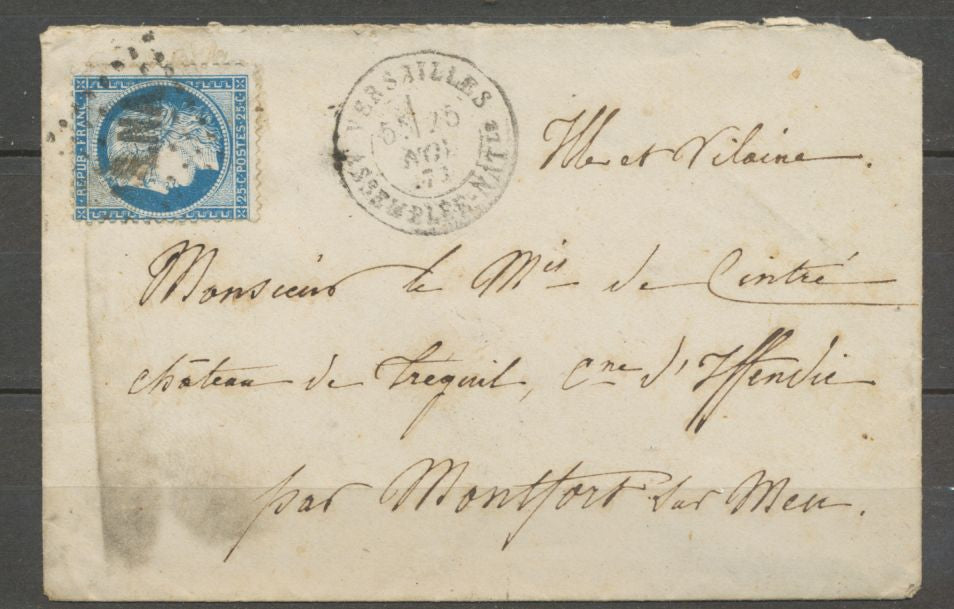 REPUB·FRANC·
25·C·POSTES·25·C
VERSAILLES
NOV
73
ASSEMBLÉE-NATLE
Ille et Vilaine.
Monsieur le Mis de Cintré
château de Treguil, Cne d'Iffendic
par Montfort sur Meu.